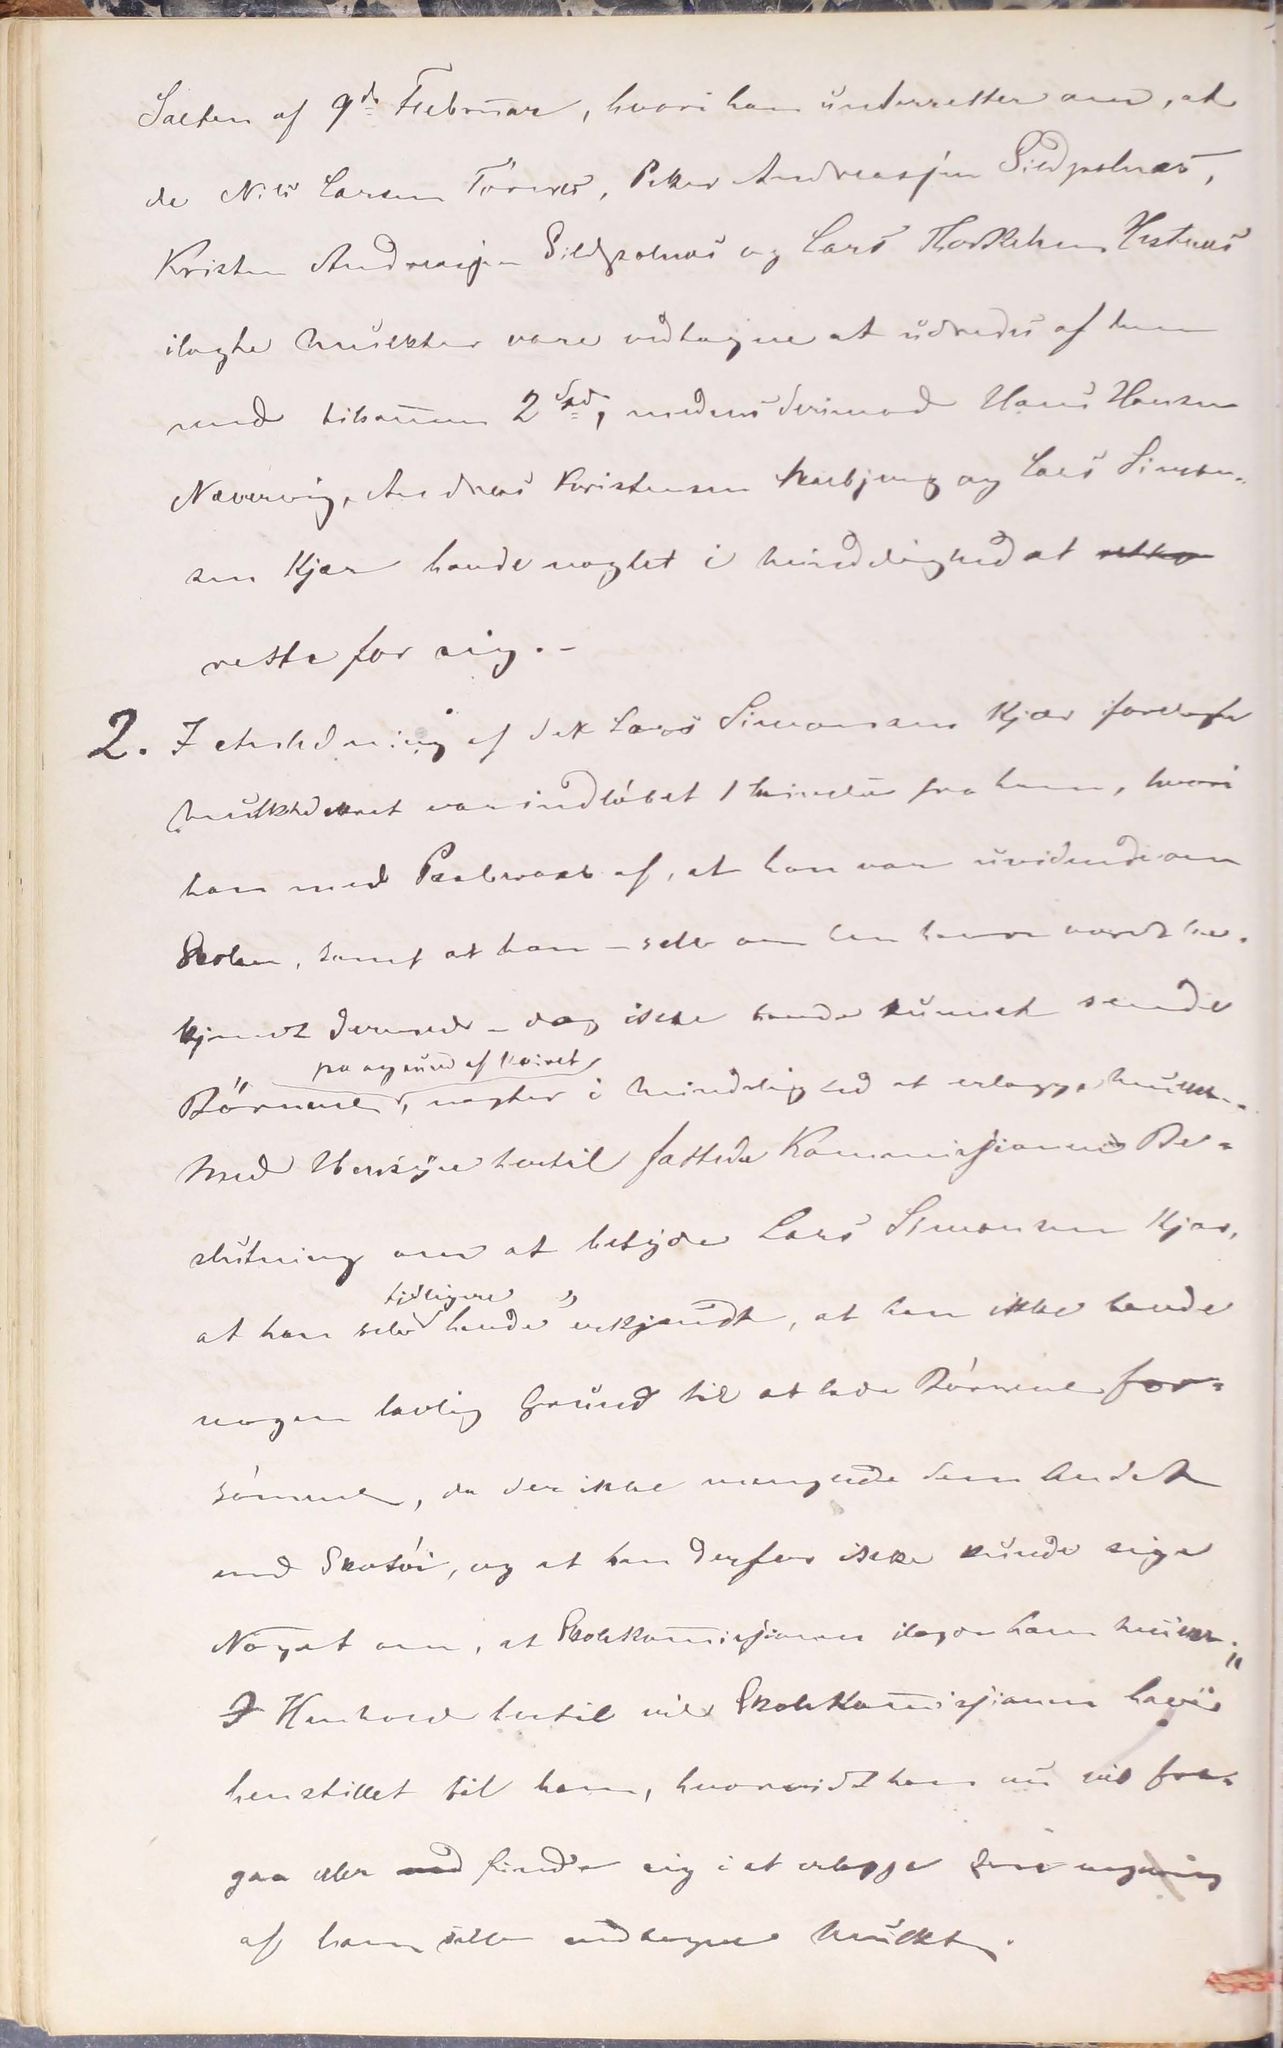 Salten af 9de Februar, hvori han underretter om, at
de Nils Larsen Törnes, Peder Andreasjen Sildpolnes,
Kristen Andreasjen Sildpolnæs og Lars Thorkelsen Hestnæs
ilagte Mulkter vare vedtagne at udredes af dem
med tilsammen 2 Spd, medens derimod Hans Hansen
Nævervig, Andreas Kristensen og Lars Simon-
sen Kjær havde nægtet i Mindelighed at rette
rette for sig. -
2. I Anledning af det Lars Simonsen Kjær forelagte
Mulktdekret var indløbet 1 Skrivelse fra ham, hvori
han med Paaberaab af, at han var uvidende om
Skolen, samt at han - selv om han havde været be-
kjendt dermed - dog ikke havde kunnet sende
paa grund af Veiret
Börnene, nægter i Mindelighed at erlægge Mulkt.-
Med Hensyn hertil fattede Kommissjonen Be-
slutning om at betyde Lars Simonsen Kjær,
tidligere
at han selv havde erkjendt, at han ikke havde
nogen lovlig Grund til at lade Börnene for-
sömme, da der ikke manglede dem Andet
end Skotöi, og at han derfor ikke kunde sige
Noget om, at Skolekommissjonen ilagde ham Mulkt."
I Henhold hertil vil Skolekommissjonen have
henstillet til ham, hvorvidt han nu vil fra-
gaa eller finde sig i at erlægge den
af ham selv vedtagne Mulkt.